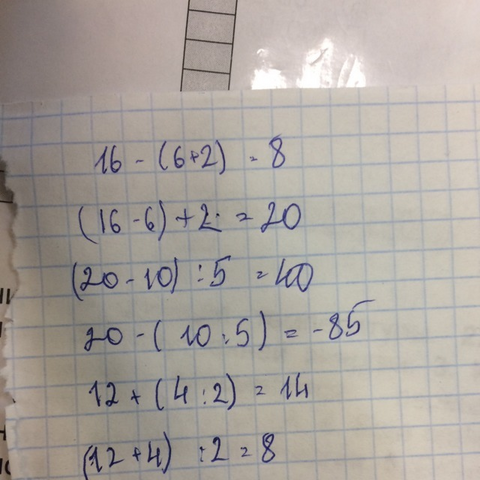 16 - (6+2) = 8
(16 - 6) + 2 = 20
(20 - 10) : 5 = 40
20 - ( 10 : 5 ) = -85
12 + ( 4 : 2) = 14
(12 + 4) : 2 = 8